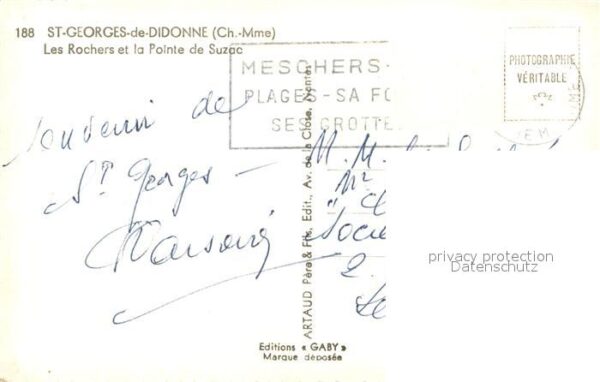 188 ST-GEORGES-de-DIDONNE (Ch.-Mme)
Les Rochers et la Pointe de Suzac
MESCHERS-
PLAGES-SA FO
SES GROTTE
PHOTOGRAPHIE
VÉRITABLE
Souvenir de
St Georges -
M. M.
Mr
Socie
2.
privacy protection
Datenschutz
ARTAUD Père & Fils, Edit., Av. de la Close, Nantes
Editions « GABY »
Marque déposée